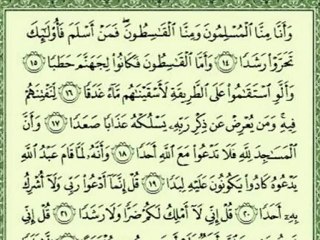 وَأَنَّا مِنَّا ٱلْمُسْلِمُونَ وَمِنَّا ٱلْقَٰسِطُونَ ۖ فَمَنْ أَسْلَمَ فَأُو۟لَٰٓئِكَ
تَحَرَّوْا۟ رَشَدًا ١٤ وَأَمَّا ٱلْقَٰسِطُونَ فَكَانُوا۟ لِجَهَنَّمَ حَطَبًا ١٥
وَأَلَّوِ ٱسْتَقَٰمُوا۟ عَلَى ٱلطَّرِيقَةِ لَأَسْقَيْنَٰهُم مَّآءً غَدَقًا ١٦ لِّنَفْتِنَهُمْ
فِيهِ ۚ وَمَن يُعْرِضْ عَن ذِكْرِ رَبِّهِۦ يَسْلُكْهُ عَذَابًا صَعَدًا ١٧ وَأَنَّ
ٱلْمَسَٰجِدَ لِلَّهِ فَلَا تَدْعُوا۟ مَعَ ٱللَّهِ أَحَدًا ١٨ وَأَنَّهُۥ لَمَّا قَامَ عَبْدُ ٱللَّهِ
يَدْعُوهُ كَادُوا۟ يَكُونُونَ عَلَيْهِ لِبَدًا ١٩ قُلْ إِنَّمَآ أَدْعُوا۟ رَبِّى وَلَآ أُشْرِكُ
بِهِۦٓ أَحَدًا ٢٠ قُلْ إِنِّى لَآ أَمْلِكُ لَكُمْ ضَرًّا وَلَا رَشَدًا ٢١ قُلْ إِنِّى